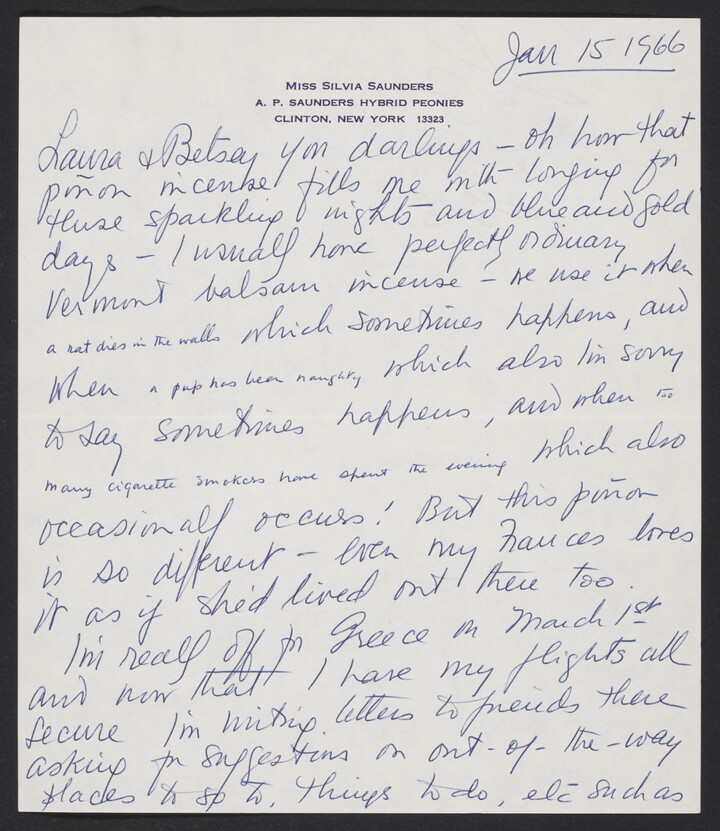 Jan 15 1966
MISS SILVIA SAUNDERS
A. P. SAUNDERS HYBRID PEONIES
CLINTON, NEW YORK 13323
Laura & Betsey you darlings – oh how that
piñon incense fills me with longing for
those sparkling nights and blue and gold
days – I usually have perfectly ordinary
Vermont balsam incense – we use it when
a rat dies in the walls which sometimes happens, and
when a pup has been naughty which also I'm sorry
to say sometimes happens, and when too
many cigarette smokers have spent the evening which also
occasionally occurs! But this piñon
is so different – even my Frances loves
it as if she'd lived out there too.
I'm really off for Greece on March 1st
and now that I have my flights all
secure I'm writing letters to friends there
asking for suggestions on out-of-the-way
places to go to, things to do, etc such as